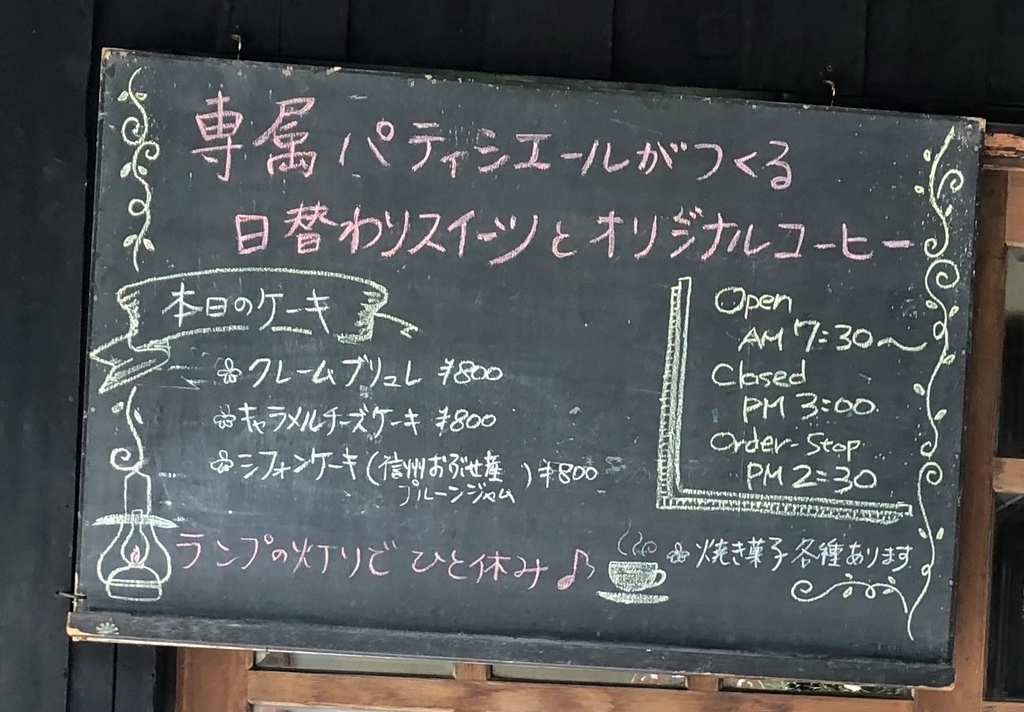 専属パティシエールがつくる
日替わりスイーツとオリジナルコーヒー
本日のケーキ
クレームブリュレ ¥800
キャラメルチーズケーキ ¥800
シフォンケーキ(信州おぶせ産プルーンジャム)¥800
Open
AM 7:30〜
Closed
PM 3:00
Order-Stop
PM 2:30
ランプの灯りでひと休み♪
焼き菓子各種あります